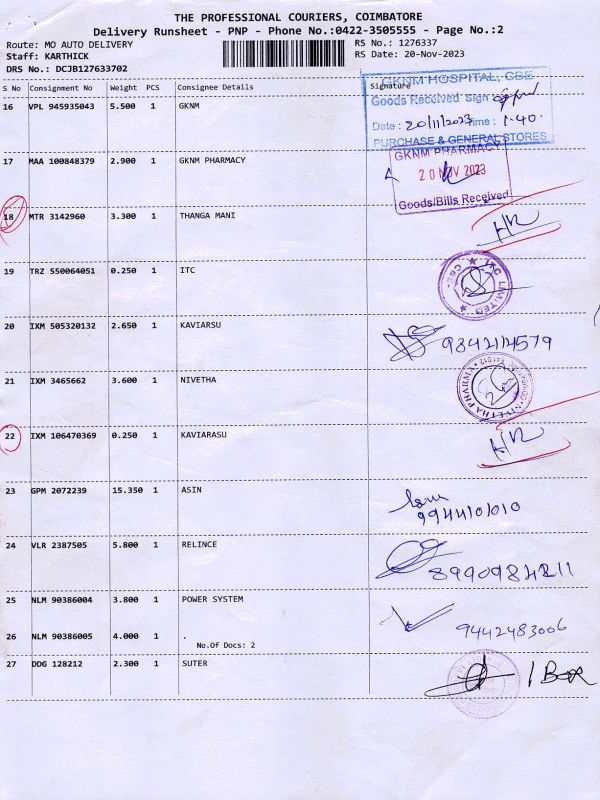 THE PROFESSIONAL COURIERS, COIMBATORE
Delivery Runsheet - PNP - Phone No.:0422-3505555 - Page No.:2
Route: MO AUTO DELIVERY
Staff: KARTHICK
DRS No.: DCJB127633702
RS No.: 1276337
RS Date: 20-Nov-2023
S No Consignment No Weight PCS Consignee Details Signature
16 VPL 945935043 5.500 1 GKNM
GKNM HOSPITAL, CBE
Goods Received Sign
Date : 20/11/2023 Time : 1.40.
PURCHASE & GENERAL STORES
17 MAA 100848379 2.900 1 GKNM PHARMACY
GKNM PHARMACY
20 NOV 2023
Goods/Bills Received
18 MTR 3142960 3.300 1 THANGA MANI
19 TRZ 550064051 0.250 1 ITC
ITC LIMITED ★ CBE. ★
20 IXM 505320132 2.650 1 KAVIARSU
9842114579
21 IXM 3465662 3.600 1 NIVETHA
NIVETHA PHARMA
22 IXM 106470369 0.250 1 KAVIARASU
23 GPM 2072239 15.350 1 ASIN
9944101010
24 VLR 2387505 5.800 1 RELINCE
25 NLM 90386004 3.800 1 POWER SYSTEM
9442483006
26 NLM 90386005 4.000 1 .
No.Of Docs: 2
27 DDG 128212 2.300 1 SUTER
1 Box